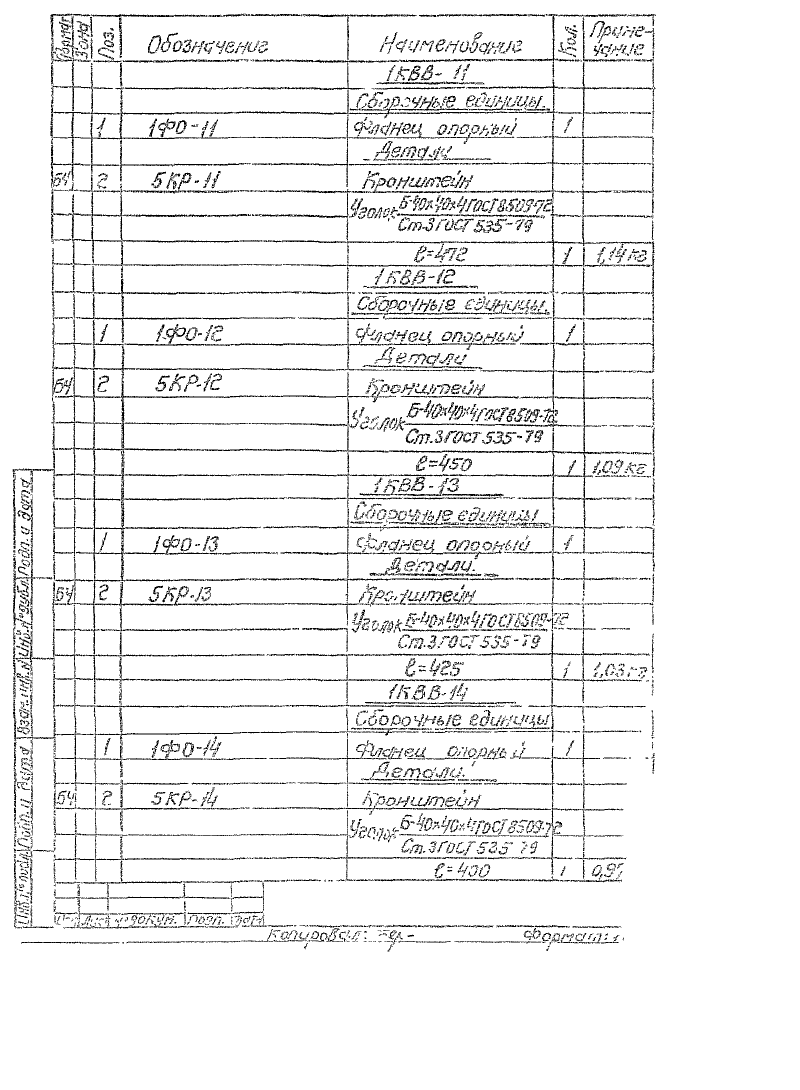 Формат Зона Поз. Обозначение Наименование Кол. Приме-
чание
1КВВ-11
Сборочные единицы
1 1ФО-11 Фланец опорный 1
Детали
БЧ 2 5КР-11 Кронштейн
Уголок Б-40х40х4 ГОСТ 8509-72
Ст.3 ГОСТ 535-79
ℓ=472 1 1,14 кг
1КВВ-12
Сборочные единицы
1 1ФО-12 Фланец опорный 1
Детали
БЧ 2 5КР-12 Кронштейн
Уголок Б-40х40х4 ГОСТ 8509-72
Ст.3 ГОСТ 535-79
ℓ=450 1 1,09 кг
1КВВ-13
Сборочные единицы
1 1ФО-13 Фланец опорный 1
Детали
БЧ 2 5КР-13 Кронштейн
Уголок Б-40х40х4 ГОСТ 8509-72
Ст.3 ГОСТ 535-79
ℓ=425 1 1,03 кг
1КВВ-14
Сборочные единицы
1 1ФО-14 Фланец опорный 1
Детали
БЧ 2 5КР-14 Кронштейн
Уголок Б-40х40х4 ГОСТ 8509-72
Ст.3 ГОСТ 535-79
ℓ=400 1 0,97
Инв.№ подл. Подп. и дата Взам. инв.№ Инв.№ дубл. Подп. и дата
Лист № докум. Подп. Дата
Копировал: Формат: